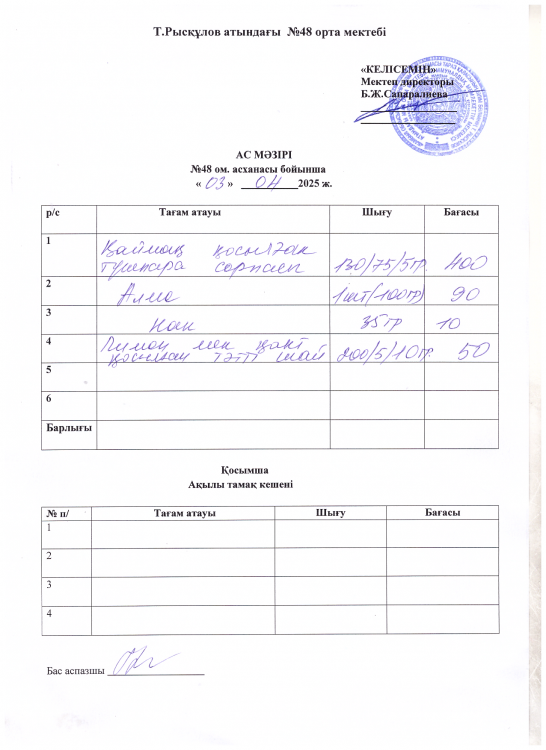 Т.Рысқұлов атындағы №48 орта мектебі
«КЕЛІСЕМІН»
Мектеп директоры
Б.Ж.Сапаралиева
АС МӘЗІРІ
№48 ом. асханасы бойынша
« 03 » 04 2025 ж.
р/с Тағам атауы Шығу Бағасы
1 Қаймақ қосылған
түшпара сорпасы 130/75/5гр. 400
2 Алма 1шт(100гр) 90
3 Нан 35гр 10
4 Лимон мен қант
қосылған тәтті шай 200/5/10гр. 50
5
6
Барлығы
Қосымша
Ақылы тамақ кешені
№ п/ Тағам атауы Шығу Бағасы
1
2
3
4
Бас аспазшы